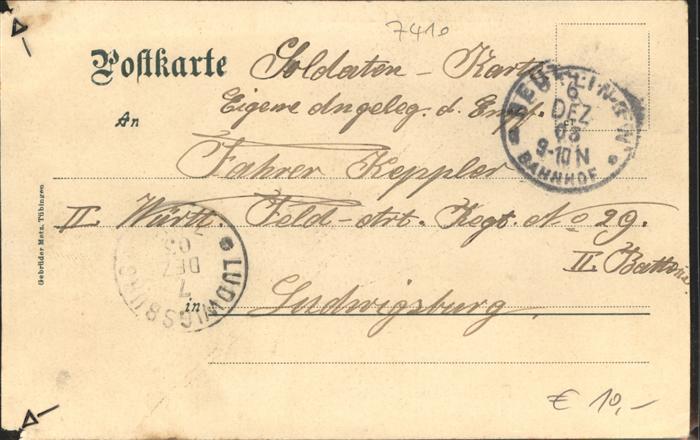 7410
Postkarte
Soldaten - Karte
Eigene Angeleg. d. Empf.
An
Fahrer Keppler
II. Württ. Feld-Art. Regt. No 29.
II. Battrie
in Ludwigsburg.
REUTLINGEN
6
DEZ
03
9-10 N
BAHNHOF
LUDWIGSBURG
7
DEZ
03
Gebrüder Metz, Tübingen
€ 10,-